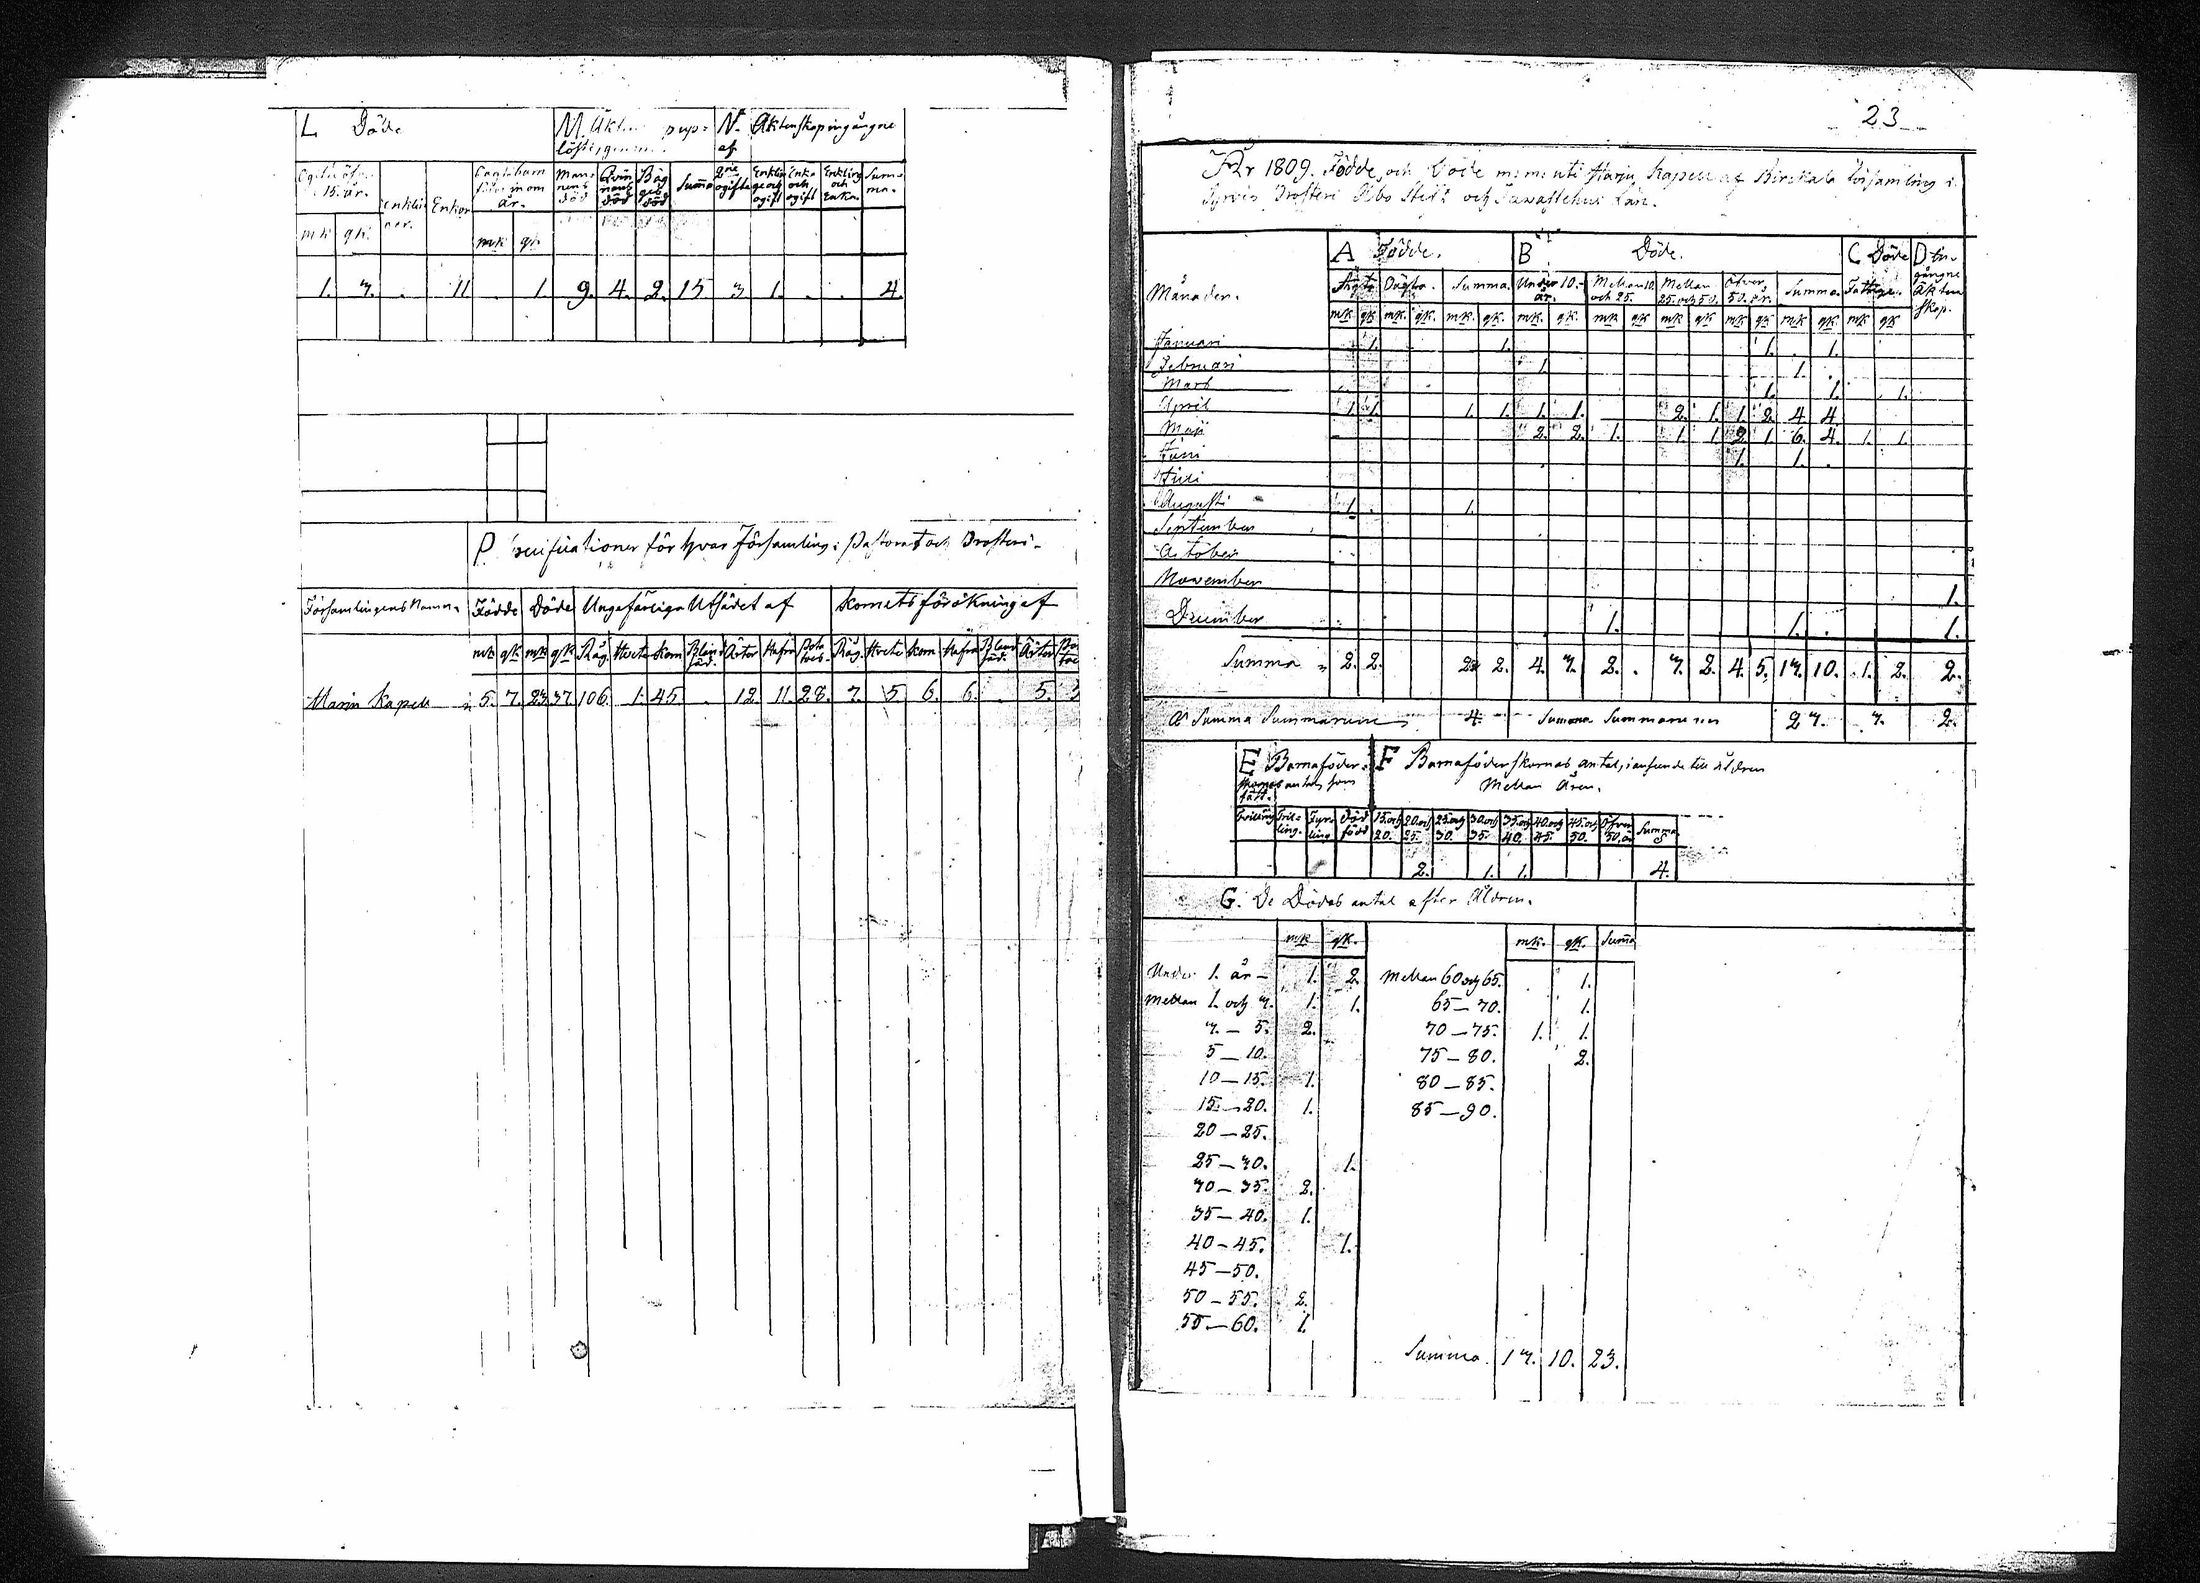 L Döde
M. Äkten pup=
N. Äktenskap ingångne
af
Ogifte öfver
15. år.
Enklin
ner.
Enkor
Oägta barn
inom
år.
Man=
nens
död
Qvin
nans
död
Båg
ges
död
Summa
2ne
ogifta
Enkling
och
ogift
Enka
och
ogift
Enkling
och
Enka.
Sum=
ma.
mk qk. mk qk
1. 3. . 11 . 1. 9. 4. 2. 15 3 1. . . 4.
P. Specificationer för hvar Församling i Pastorat och Prosteri.
Församlingens Namn.
Födde
Döde
Ungefärliga Utsädet af
Kornets förökning af
mk qk mk qk Råg. Hvete Korn Bland säd. Ärter Hafra Pota toes. Råg. Hvete Korn Hafra Bland säd. Ärter
Marin Kapell 5. 7. 23. 37. 106. 1. 45. . 12. 11. 28. 7. 5. 6. 6. . 5.
23
År 1809. Födde, och Döde Harju Kapell af Birkala Församling i
Prosteri Åbo Stift och Tavastehus Län.
Månader.
A Födde.
B Döde.
C Döde
D In=
gångne
Äkten
skap.
Ägta Oägta. Summa. Under 10. år. Mellan 10 och 25. Mellan 25. och 50. Öfver 50. år. Summa.
mk qk mk. qk. mk. qk. mk. qk. mk qk mk qk mk qk mk qk. mk qk
Januari 1. 1. 1. . 1.
Februari 1. 1. .
Mars 1. 1. 1.
April 1. 1. 1. 1. 1. 1. 2. 1. 1. 2. 4. 4.
Maji 2. 2. 1. 1. 1. 2. 1. 6. 4. 1. 1.
Juni 1. 1. .
Juli
Augusti 1. . 1.
September
October
November 1.
December 1. 1. . 1.
Summa 2. 2. 2. 2. 4. 3. 2. . 3. 2. 4. 5. 13. 10. 1. 2. 2.
Summa Summarum 4. Summa Summarum 23. 3. 2.
E Barnaföder=
skornas antal, som
fått.
F Barnaföderskornas antal, i anseende till åldren
Mellan Åren.
Tvilling Tril= ling. Fyr= ling Död född 15. och 20. 20. och 25. 25. och 30. 30. och 35. 35. och 40. 40. och 45. 45. och 50. Öfver 50. år Summa
2. 1. 1. 4.
G. De Dödas antal efter Åldren.
mk qk. mk. qk. Summa
Under 1. år 1. 2. Mellan 60 och 65. 1.
Mellan 1. och 3. 1. 1. 65 — 70. 1.
3. — 5. 2. 70 — 75. 1. 1.
5 — 10. 75 — 80. 2.
10 — 15. 1. 80 — 85.
15. — 20. 1. 85 — 90.
20 — 25.
25 — 30. 1.
30 — 35. 2.
35 — 40. 1.
40 — 45. 1.
45 — 50.
50 — 55. 2.
55 — 60. 1.
Summa. 13. 10. 23.